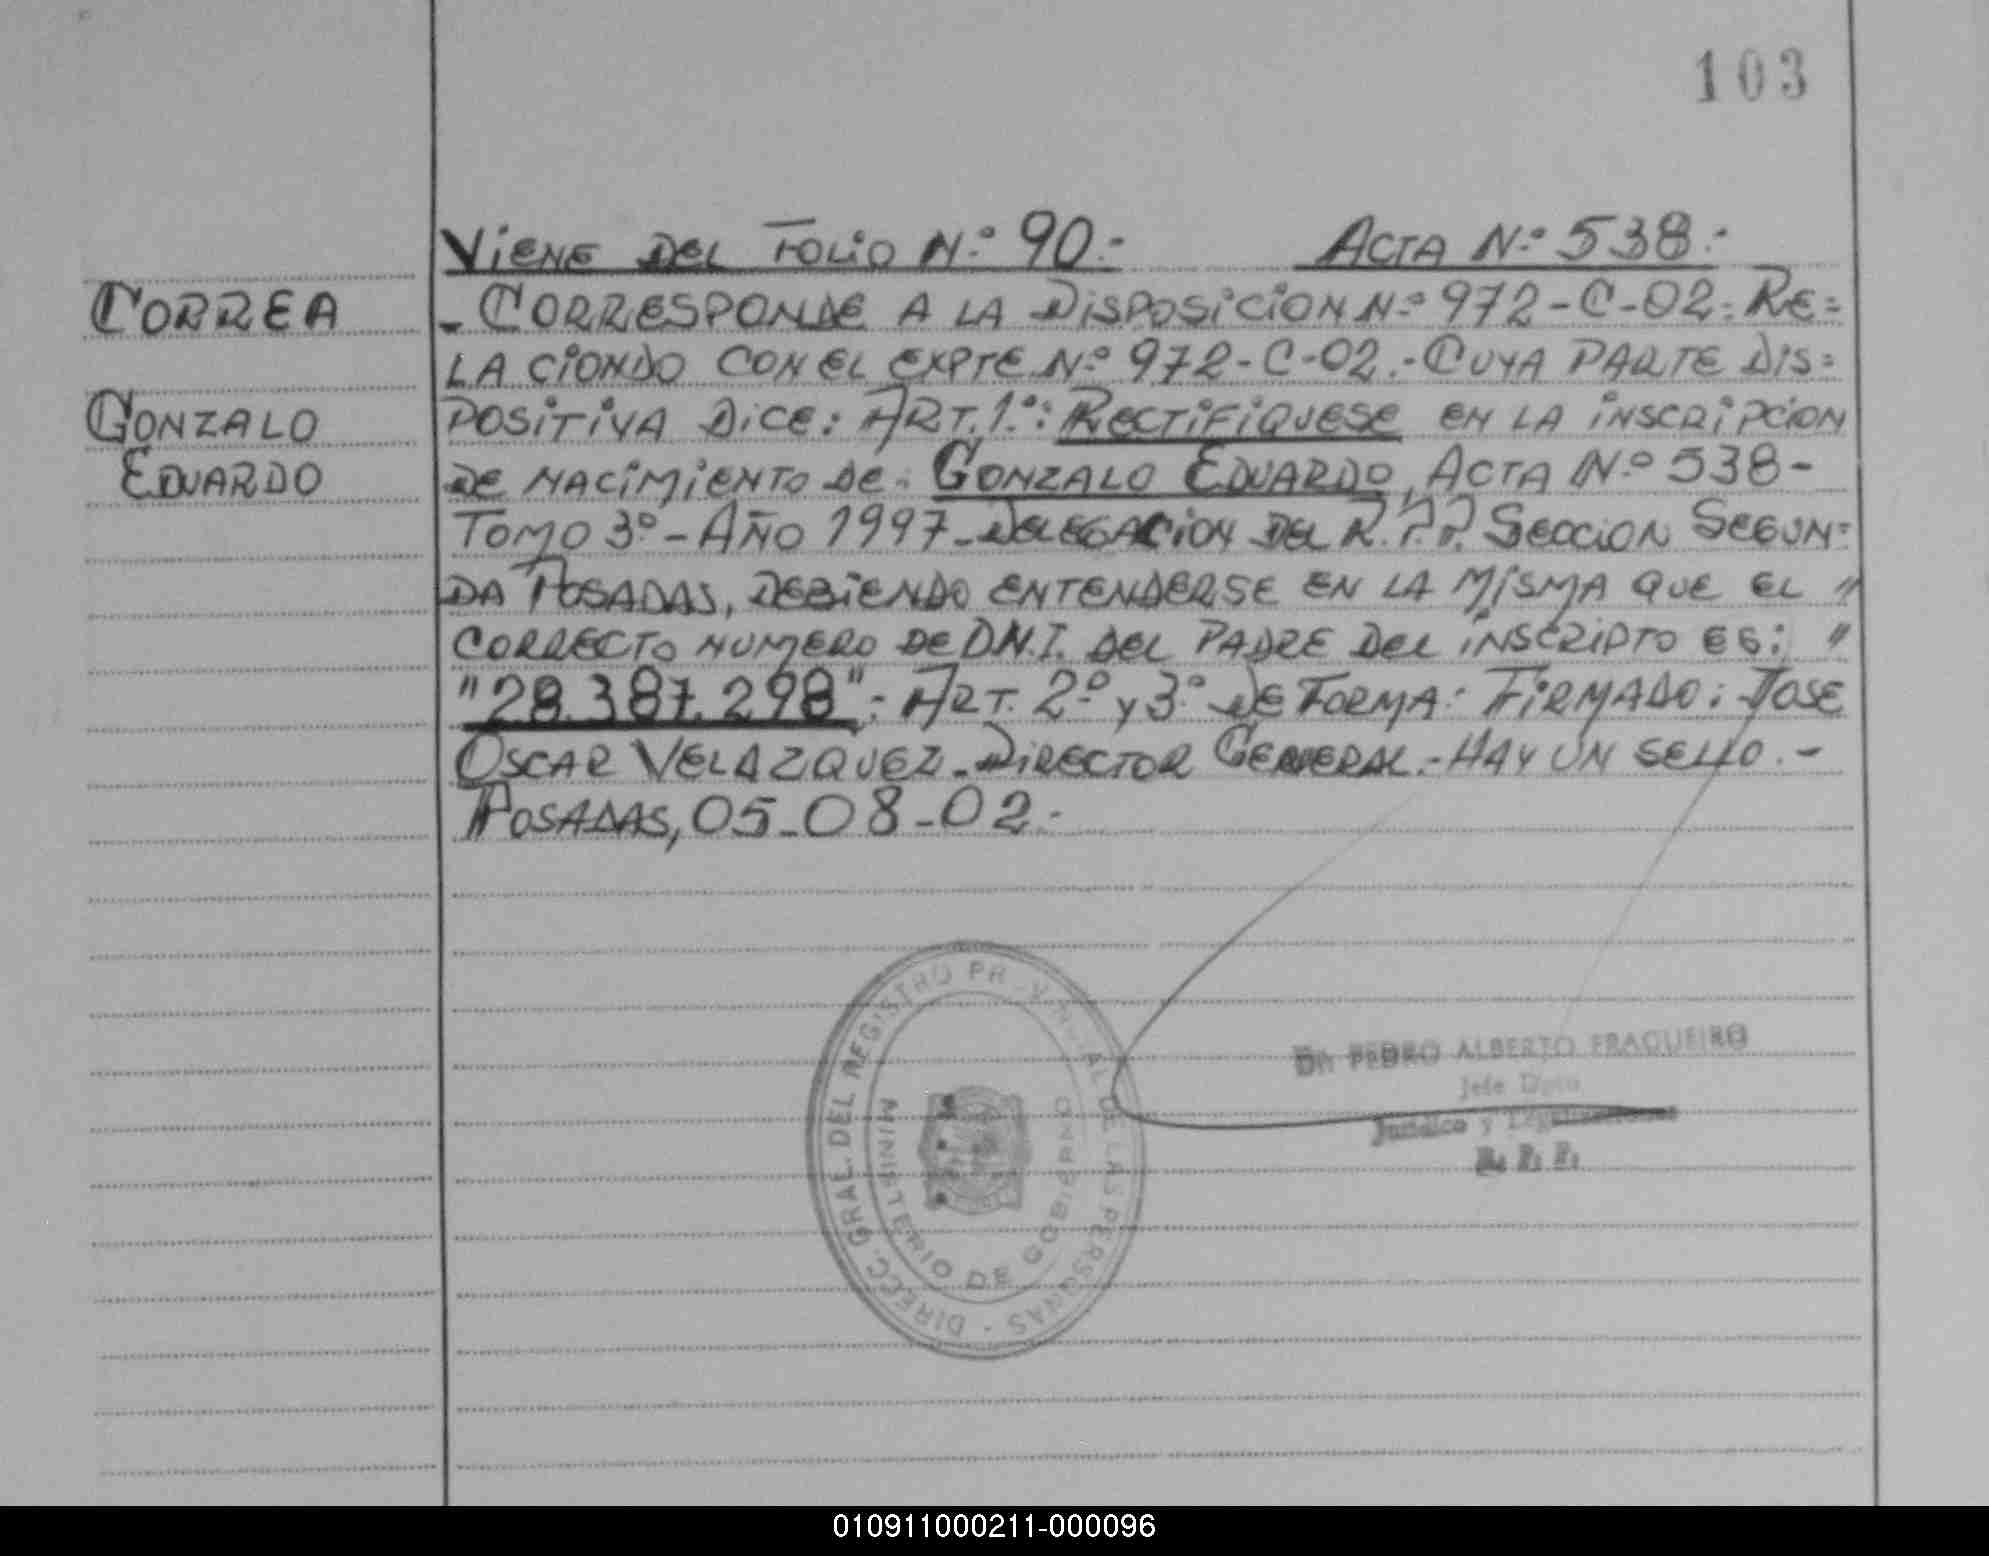 103
VIENE DEL FOLIO N.º 90.- ACTA N.º 538.-
CORREA
GONZALO
EDUARDO
- CORRESPONDE A LA DISPOSICION N.º 972-C-02. RE=
LACIONDO CON EL EXPTE N.º 972-C-02.- CUYA PARTE DIS=
POSITIVA DICE: ART. 1.º: RECTIFIQUESE EN LA INSCRIPCION
DE NACIMIENTO DE: GONZALO EDUARDO, ACTA N.º 538-
TOMO 3º - AÑO 1997 - DELEGACION DEL R.P.P. SECCION SEGUN=
DA POSADAS, DEBIENDO ENTENDERSE EN LA MISMA QUE EL "
CORRECTO NUMERO DE D.N.I. DEL PADRE DEL INSCRIPTO ES: "
"28.387.298".- ART. 2.º y 3.º DE FORMA: FIRMADO: JOSE
OSCAR VELAZQUEZ - DIRECTOR GENERAL.- HAY UN SELLO.-
POSADAS, 05-08-02.-
DIRECC. GRAL. DEL REGISTRO PROVINCIAL DE LAS PERSONAS -
MINISTERIO DE GOBIERNO
Dr. PEDRO ALBERTO FRAGUEIRO
Jefe Dpto
Jurídico y Legalizaciones
R. P. P.
010911000211-000096